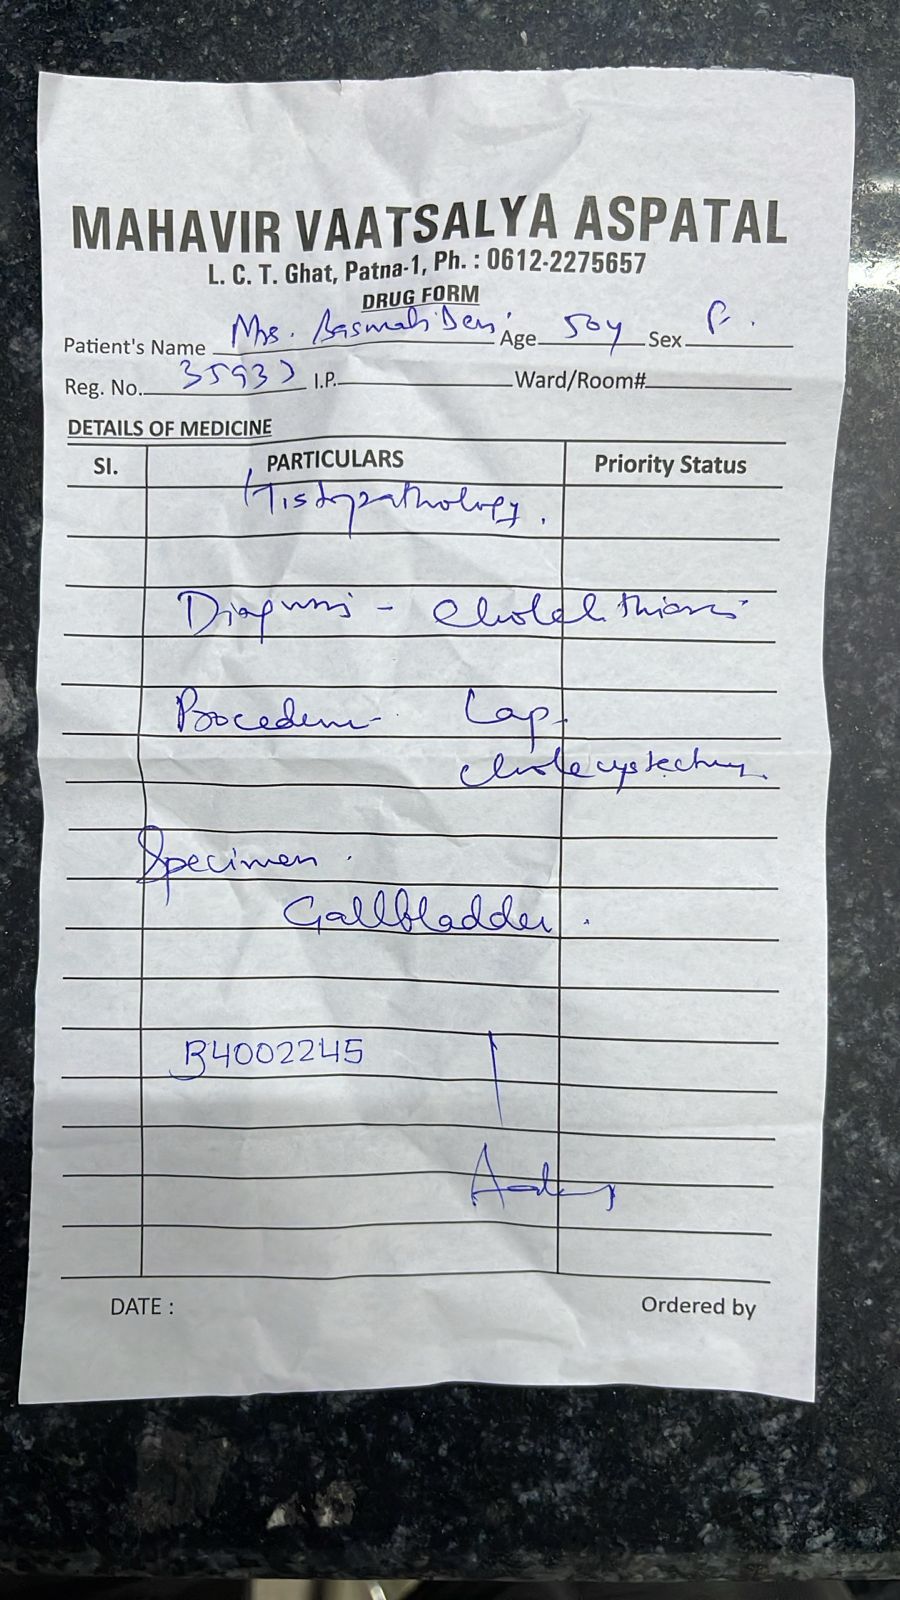 MAHAVIR VAATSALYA ASPATAL
L. C. T. Ghat, Patna-1, Ph. : 0612-2275657
DRUG FORM
Patient's Name Mrs. Devi Age 50y Sex F.
Reg. No. I.P. Ward/Room#
DETAILS OF MEDICINE
Sl. PARTICULARS Priority Status
Histopathology.
Diagnosis - Cholelithiasis
Procedure - Lap.
cholecystectomy.
Specimen.
Gallbladder.
B4002245
DATE : Ordered by